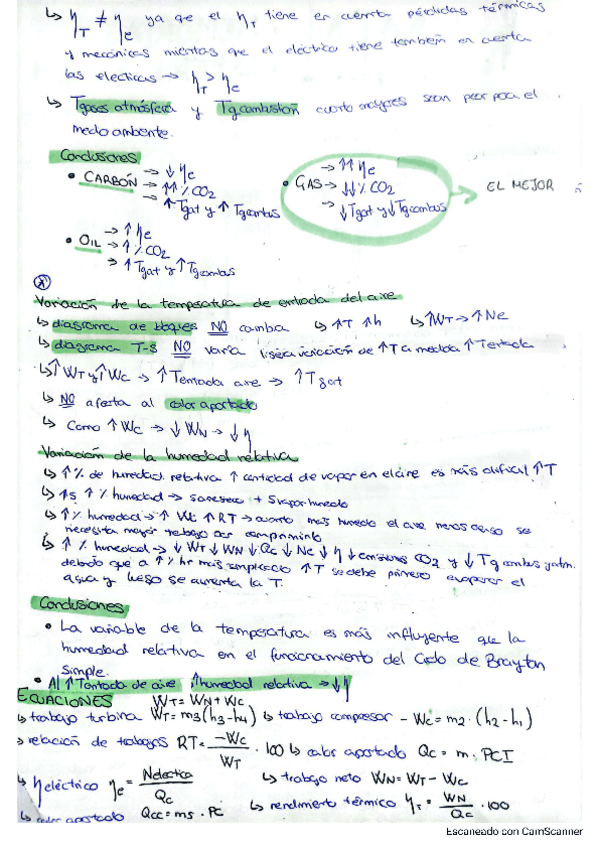 ↳ ηT ≠ ηe ya que el ηT tiene en cuenta pérdidas térmicas
y mecánicas mientras que el eléctrico tiene también en cuenta
las electricas → ηT > ηe
↳ Tgases atmósfera y Tgcombustión cuanto mayores sean peor para el
medio ambiente.
Conclusiones
• CARBÓN → ↓ηe → ↑↑%CO2 → ↑Tgat y ↑Tgcombus
• GAS → ↑↑ηe → ↓↓%CO2 → ↓Tgat y ↓Tgcombus → EL MEJOR
• OIL → ↑ηe → ↑%CO2 → ↑Tgat y ↑Tgcombus
A
Variación de la temperatura de entrada del aire
↳ diagrama de bloques NO cambia ↳ ↑T ↑h ↳ ↑WT → ↑Ne
↳ diagrama T-S NO varía ligera variación de ↑T a medida ↑Tentrada
↳ ↑WT y ↑Wc → ↑Tentrada aire → ↑Tgat
↳ NO afecta al calor aportado
↳ Como ↑Wc → ↓WN → ↓η
Variación de la humedad relativa
↳ ↑% de humedad relativa ↑ cantidad de vapor en el aire es más dificil ↑T
↳ ↑S ↑% humedad → + Svapor humedo
↳ ↑% humedad → ↑Wc ↑RT → cuanto más humedo el aire menos denso se
necesita mayor trabajo por comprimirlo
↳ ↑% humedad → ↓WT ↓WN ↓Qc ↓Ne ↓η ↓emisiones CO2 y ↓Tgcombus y atm.
debido que a ↑%hr más complicado ↑T se debe primero evaporar el
agua y luego se aumenta la T.
Conclusiones
• La variable de la temperatura es más influyente que la
humedad relativa en el funcionamiento del Ciclo de Brayton
Simple.
• Al ↑Tentrada de aire, ↑humedad relativa → ↓η
ECUACIONES WT = WN + Wc
↳ trabajo turbina WT = m3(h3-h4) ↳ trabajo compresor -Wc = m2·(h2-h1)
↳ relación de trabajos RT = -Wc/WT · 100 ↳ calor aportado Qc = m·PCI
↳ ηeléctrico ηe = Nelectrica/Qc ↳ trabajo neto WN = WT - Wc
↳ calor aportado Qcc = m5·PC ↳ rendimiento térmico ηT = WN/Qc · 100
Escaneado con CamScanner